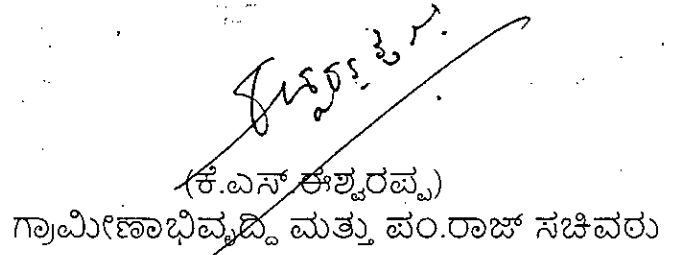 (ಕೆ.ಎಸ್ ಈಶ್ವರಪ್ಪ)
ಗ್ರಾಮೀಣಾಭಿವೃದ್ದಿ ಮತ್ತು ಪಂ.ರಾಜ್ ಸಚಿವರು